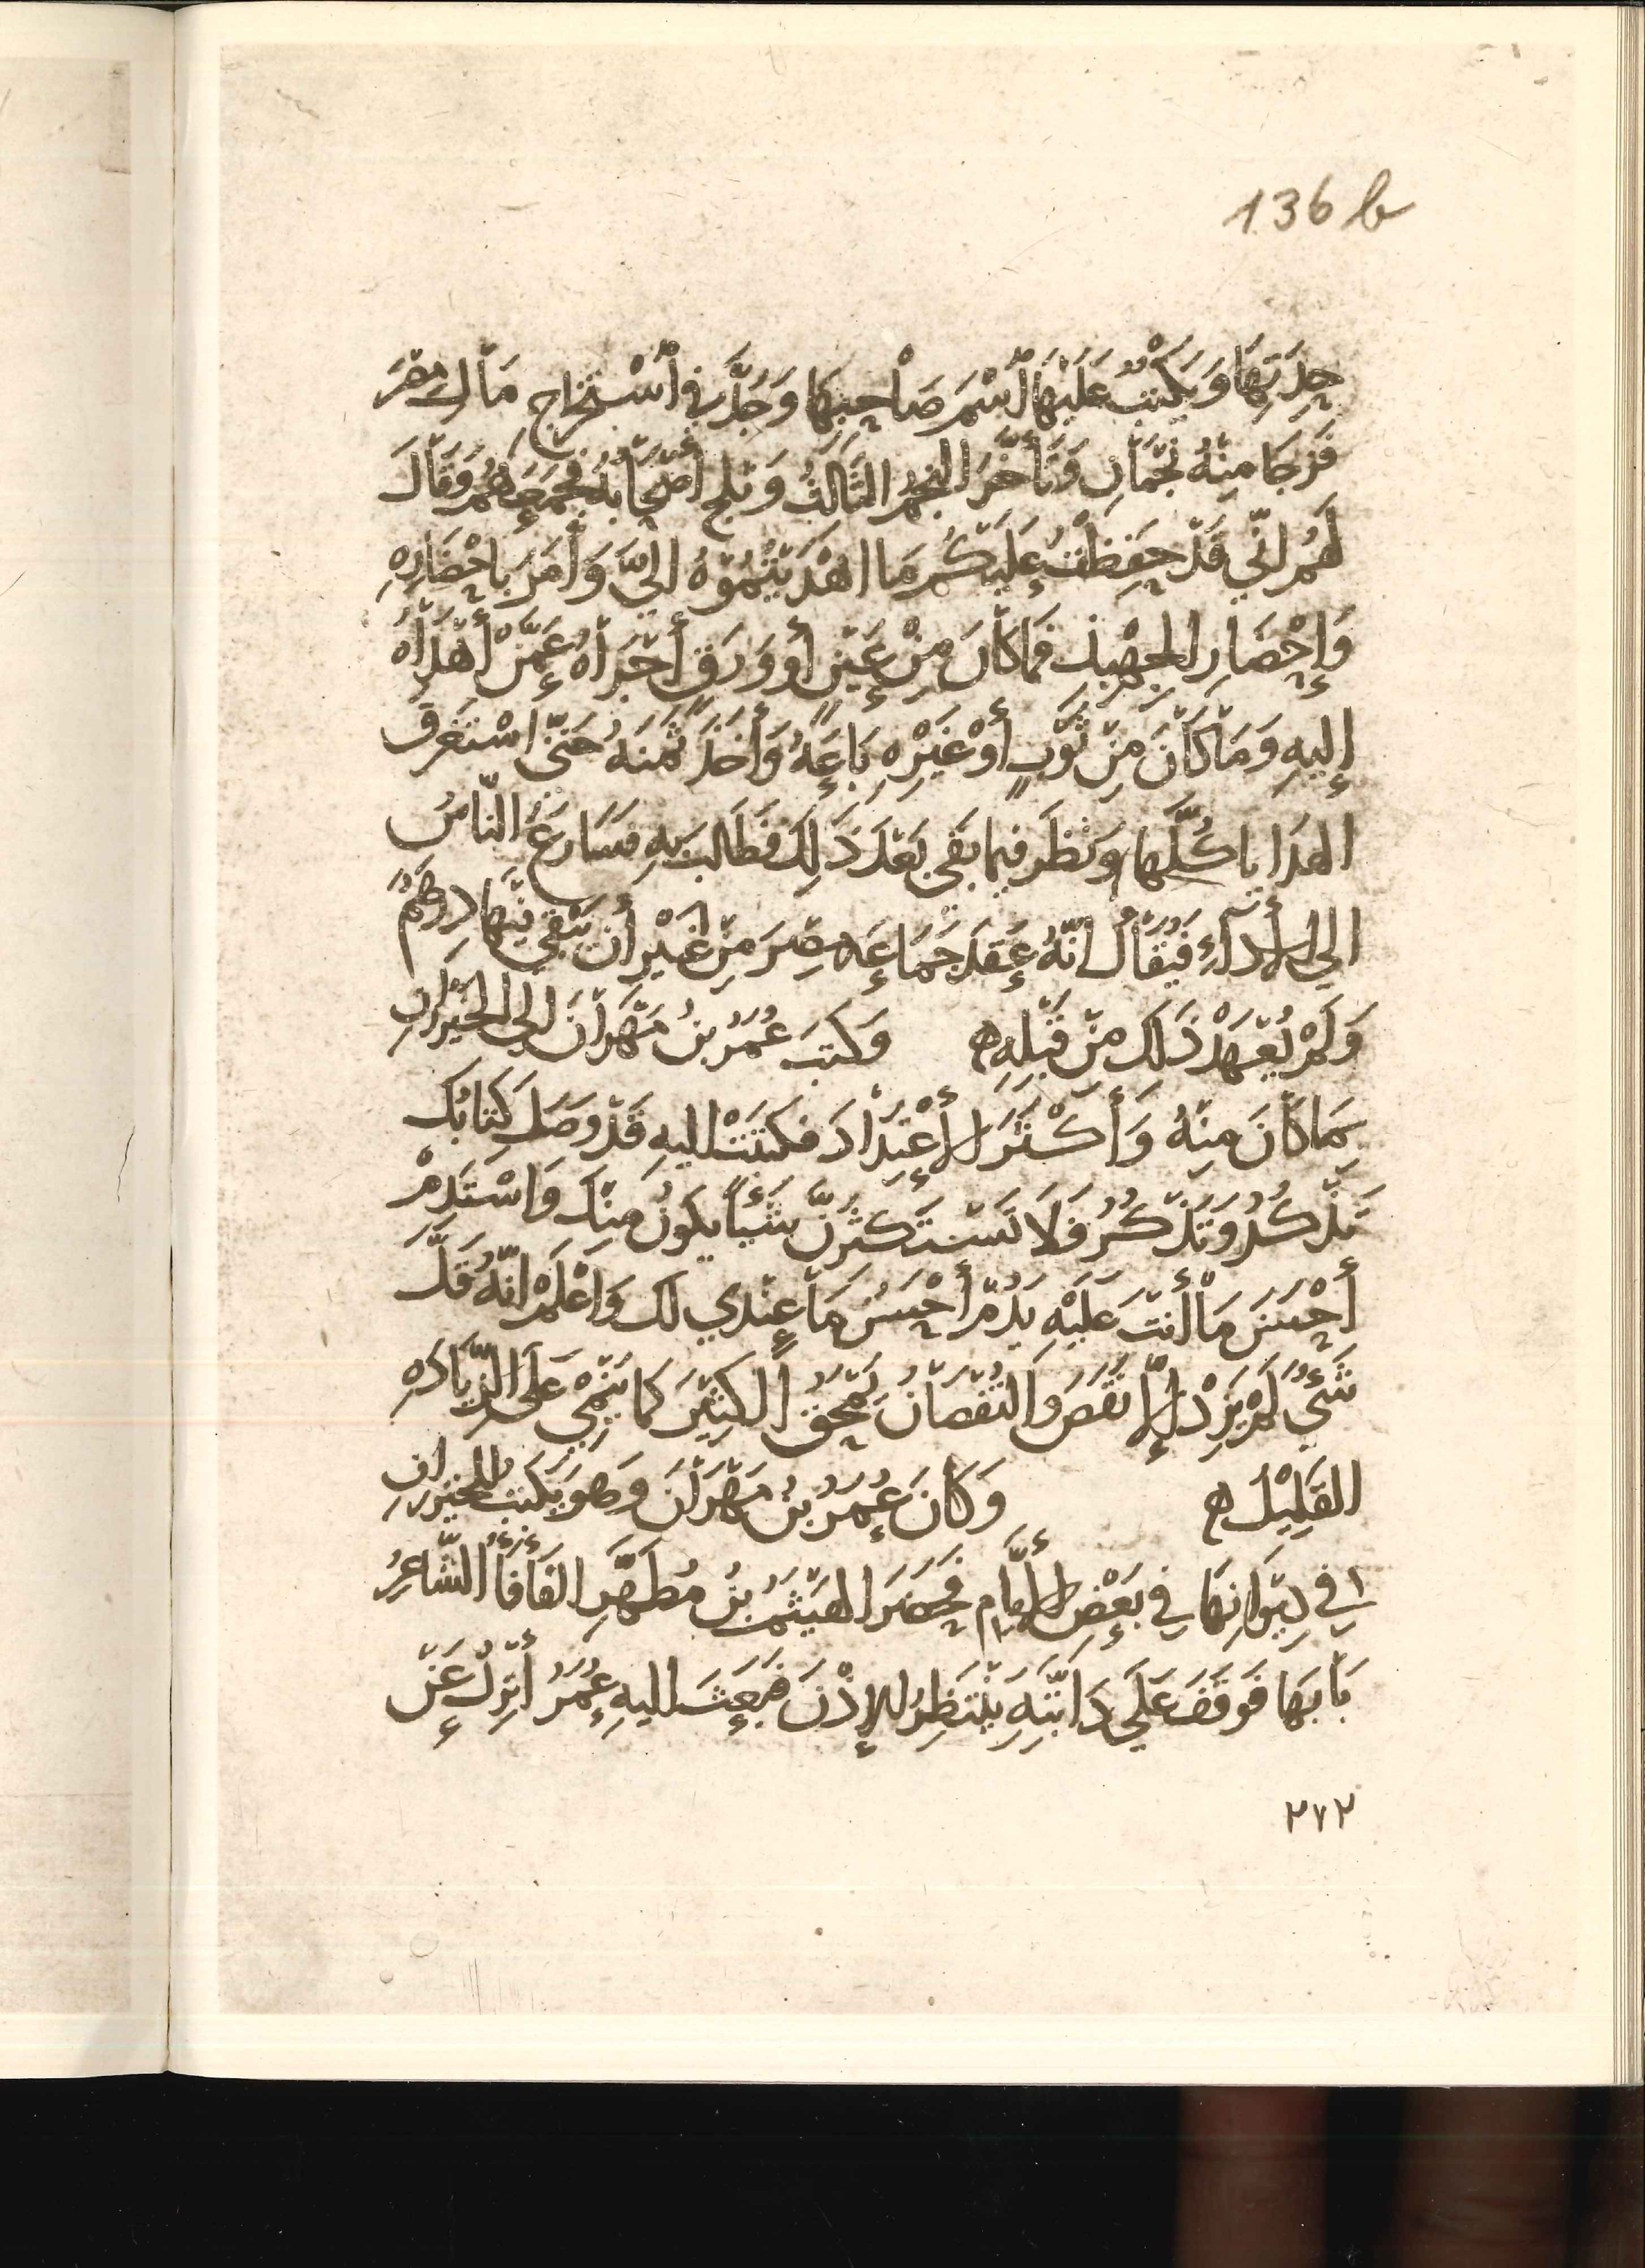 136 b
حِدَتِهَا وَيَكْتُبُ عَلَيْهَا اُسْمَ صَاحِبِهَا وَجَدَّ فِي اُسْتِخْرَاجِ مَالِ مِصْرَ
فَزَجَا مِنْهُ نَجْمَانِ وَتَأَخَّرَ النجمُ الثَّالثُ وَبَلح أَصْحَابُهُ فَجَمَعَهُمْ وَقَالَ
لَهُمْ انّي قَدْ حَفِظْتُ عَلَيْكُمْ مَا اهْدَيْتُمُوْهُ اليَّ وَأَمَرَ بِاحْضَارِهِ
وَإِحْضَارِ الجِهْبِذِ فَمَا كَانَ مِنْ عَيْنٍ أَو وَرَقٍ أَجْرَاهُ عَمَّنْ أَهْدَاهُ
إِليهِ وَمَا كَانَ مِنْ ثَوْبٍ أَوْ غَيْرِهِ بَاعَهُ وَأَخَذَ ثَمَنَهُ حَتّى اسْتَغْرَقَ
الهدَايا كُلَّهَا وَنَظَر فيما بَقي بَعْدَ ذَلِكَ فَطَالَبَ بِهِ فسَارَعَ النّاسُ
الى الأَدآءِ فَيُقَالُ انّهُ عَقَدَ جَمَاعَه مِصْرَ مِنْ غَيْرِ أَن يَبْقَي فيْهَا دِرْهَمٌ
وَلَمْ يُعْهَدْ ذَلكَ مِنْ قَبْلِهِ ه وَكتبَ عُمَرُ بنُ مَهْرَانَ الى الخَيْزُرَانِ
بِمَا كَانَ مِنْهُ وَأَكْثَرَ الأِعْتِدَادَ فكتَبَتْ اليهِ قَدْ وصَلَ كِتَابُكَ
تَذْكُرُ وتَذْكُرُ فَلاَ تَسْتَكثِرنَّ شَيْئاً يكونُ مِنْكَ وَاسْتَدِمْ
أَحْسَنَ مَا أَنتَ عَلَيْهِ يَدُمْ أَحْسَنُ مَا عِنْدي لكَ وَاعْلَمْ انّهُ قَلَّ
شَيْءٌ لَمْ يَزِدْ إِلاَّ نَقَصَ وَالنُقْصَانُ يَمْحَقُ الكَثِيْرَ كما يَنْمِي عَلَى الزّيَادَهِ
القَلِيْلُ ه وَكَانَ عُمَرُ بنُ مَهْرَانَ وَهو يَكتبُ للخيزرانِ
في دِيْوَانِهَا فِي بَعْضِ الأَيَّامِ فَحَضَرَ الهَيْثَمُ بنُ مُطَهَّرٍ الفَأفَأُ الشّاعِرُ
بَابَهَا فَوقَفَ عَلَي دَابَّتِهِ يَنْتَظِرُ الإِذْنَ فَبَعَثَ اليهِ عُمَرُ أَنْزِلْ عَنْ
٢٧٢